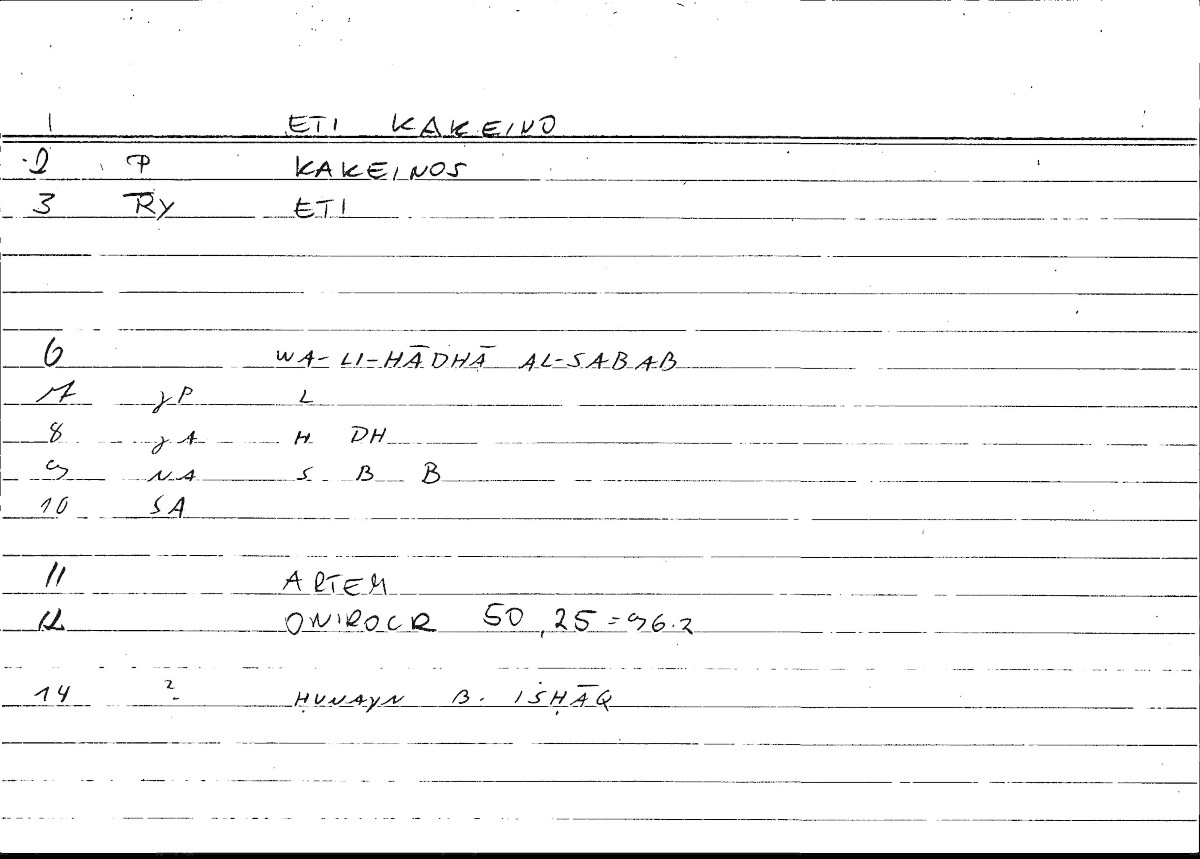 1 ETI KAKEINO
2 P KAKEINOS
3 Ry ETI
6 WA-LI-HĀDHĀ AL-SABAB
7 yP L
8 yA H DH
9 NA S B B
10 SA
11 ARTEM
12 ONIROCR 50,25=96.2
14 2 ḤUNAYN B. ISḤĀQ